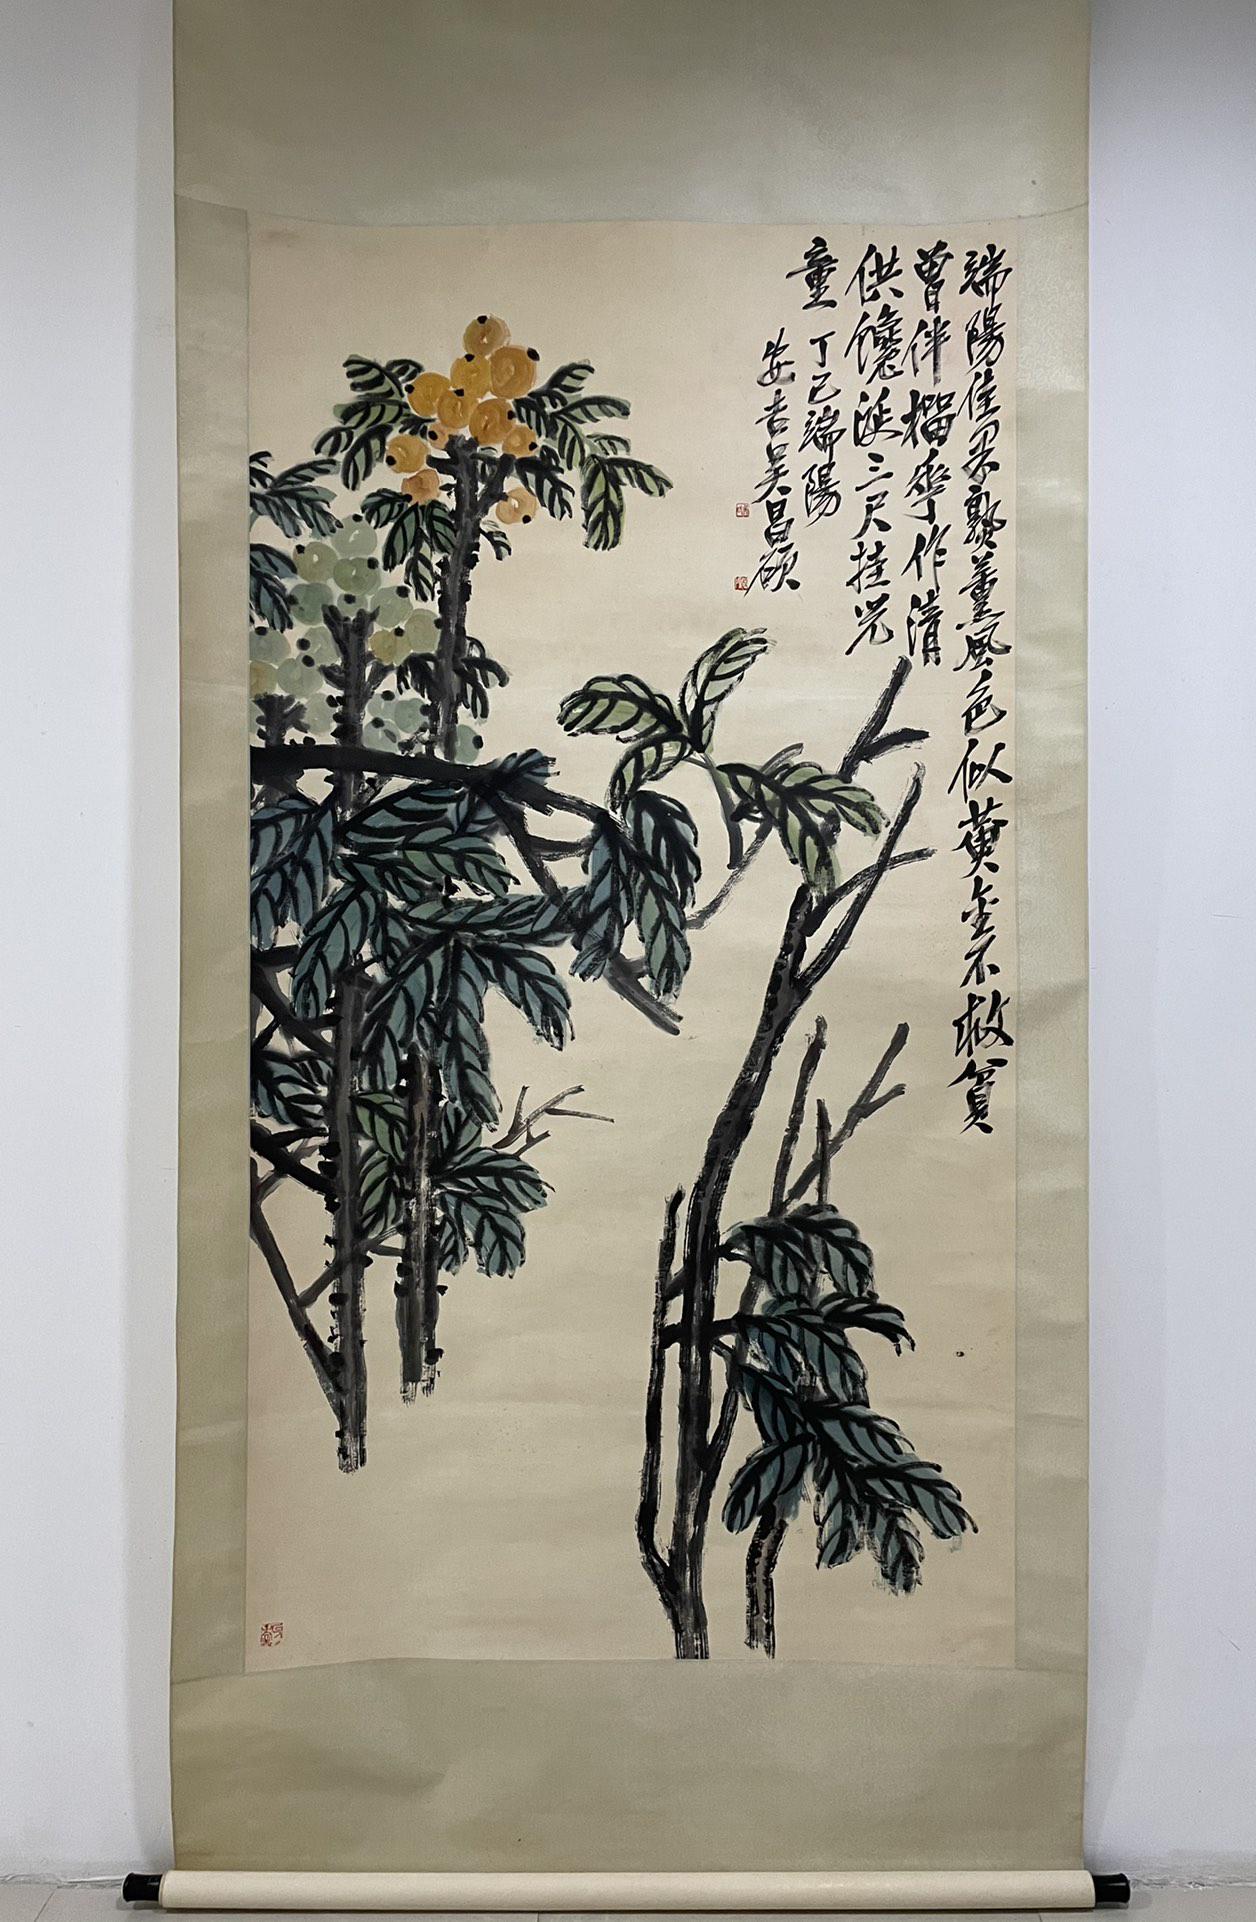 端陽佳果熟薰風色似黄金不救貧
曾伴榴花作清
供饞涎三尺挂兒
童
丁巳端陽
安吉吴昌碩